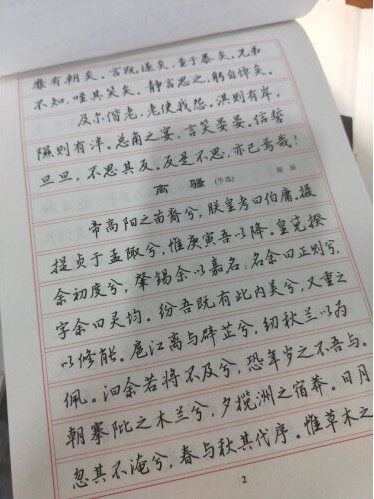 靡有朝矣。言既遂矣，至于暴矣。兄弟
不知，咥其笑矣。静言思之，躬自悼矣。
及尔偕老，老使我怨。淇则有岸，
隰则有泮。总角之宴，言笑晏晏。信誓
旦旦，不思其反。反是不思，亦已焉哉！
离 骚 (节选) 屈原
帝高阳之苗裔兮，朕皇考曰伯庸。摄
提贞于孟陬兮，惟庚寅吾以降。皇览揆
余初度兮，肇锡余以嘉名：名余曰正则兮，
字余曰灵均。纷吾既有此内美兮，又重之
以修能。扈江离与辟芷兮，纫秋兰以为
佩。汩余若将不及兮，恐年岁之不吾与。
朝搴阰之木兰兮，夕揽洲之宿莽。日月
忽其不淹兮，春与秋其代序。惟草木之
2